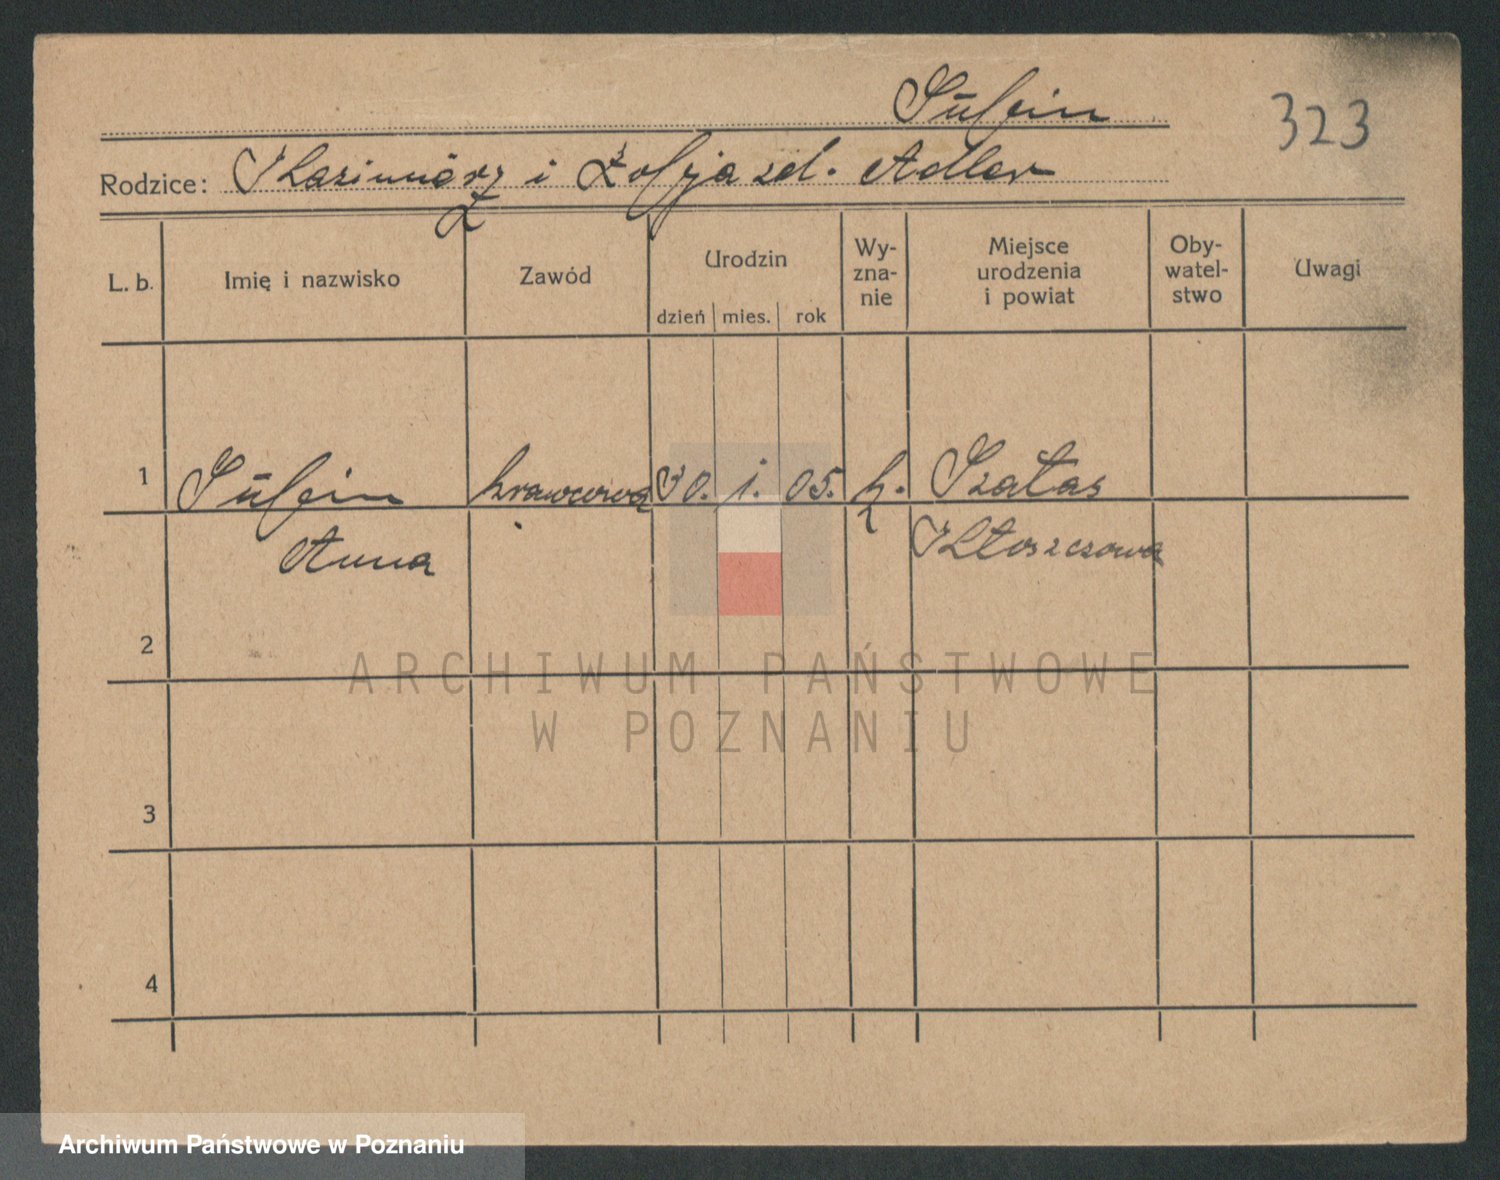 Sufein
323
Rodzice: Kazimierz i Zofja zd. Adler
L. b. Imię i nazwisko Zawód Urodzin dzień mies. rok Wy-zna-nie Miejsce urodzenia i powiat Oby-watel-stwo Uwagi
1 Sufein krawcowa 30. 1. 05. k. Szałas
Anna Włoszczowa
2
3
4
ARCHIWUM PAŃSTWOWE
W POZNANIU
Archiwum Państwowe w Poznaniu